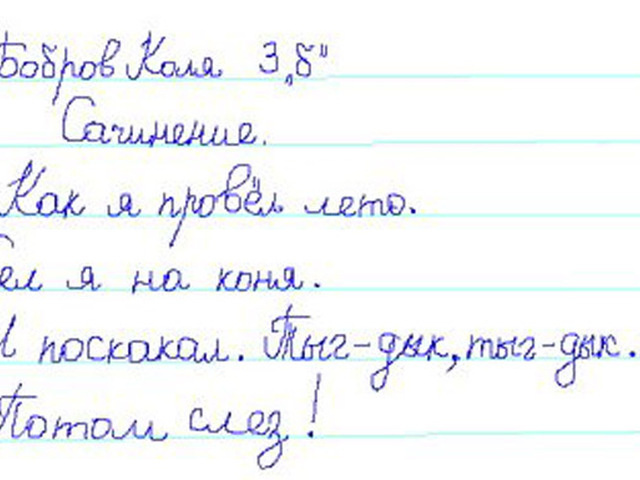 Бобров Коля 3 „б"
Сочинение.
Как я провёл лето.
ел я на коня.
И поскакал. Тыг-дык, тыг-дык.
Потом слез!